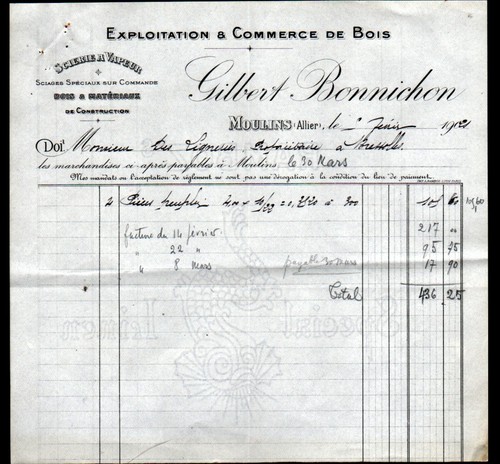 Exploitation & Commerce de Bois
Scierie à Vapeur
Sciages Spéciaux sur Commande
Bois & Matériaux
de Construction
Gilbert Bonnichon
Moulins (Allier), le 2 19
Doit Monsieur des Ligneries Propriétaire à Bressolles
les marchandises ci-après payables à Moulins, le 30 Mars
Mes mandats ou l'acceptation de règlement ne sont pas une dérogation à la condition du lieu de paiement.
2 Pièces peuplier à 300 105 60 105,60
facture du 14 février 217 "
" 22 " 95 75
" 8 Mars payable 30 Mars 17 90
Total 436 25